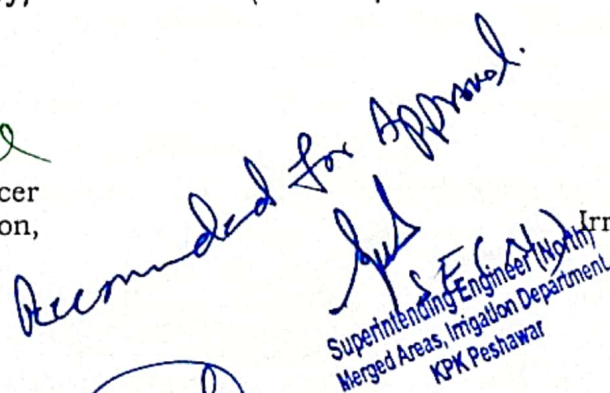 Recommended for Approval.
cer
on,
Irr
SE(N)
Superintending Engineer (North)
Merged Areas, Irrigation Department
KPK Peshawar